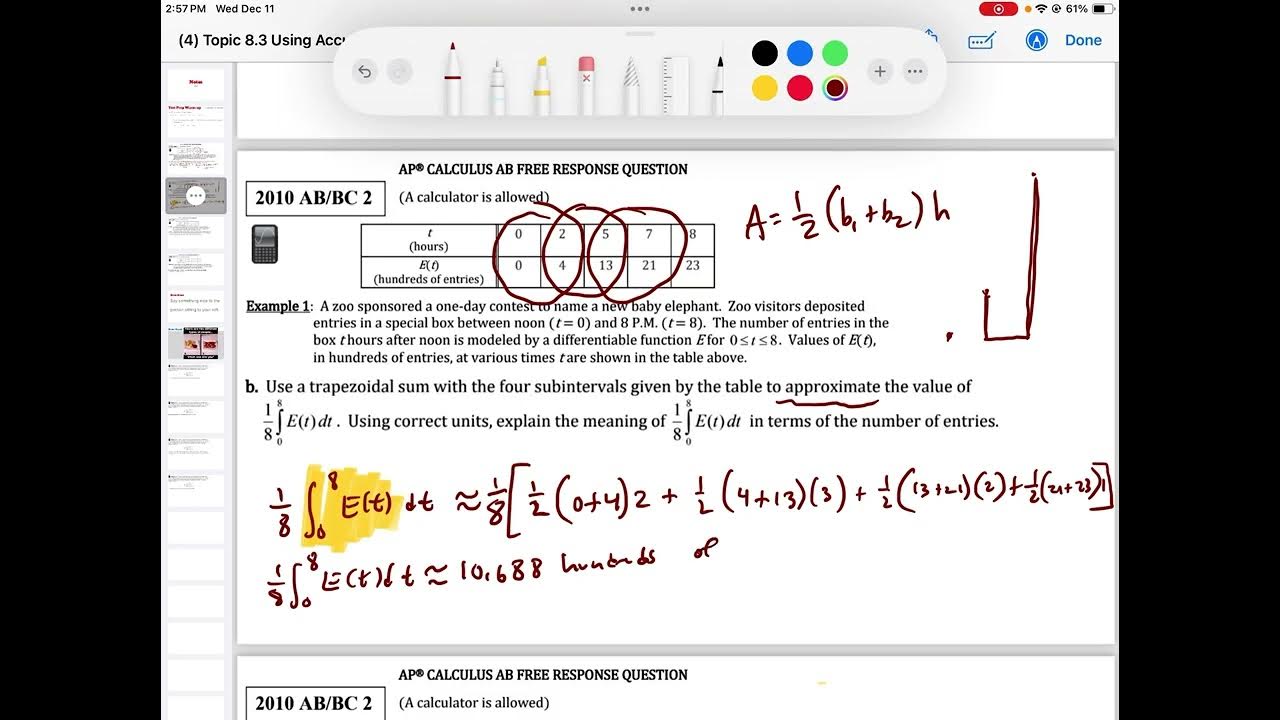 2:57 PM Wed Dec 11
61%
(4) Topic 8.3 Using Accu
Done
Notes
AP® CALCULUS AB FREE RESPONSE QUESTION
2010 AB/BC 2
(A calculator is allowed)
t (hours) 0 2 5 7 8
E(t) (hundreds of entries) 0 4 13 21 23
A = 1/2 (b₁ + b₂) h
Example 1: A zoo sponsored a one-day contest to name a new baby elephant. Zoo visitors deposited
entries in a special box between noon (t = 0) and 8 P.M. (t = 8). The number of entries in the
box t hours after noon is modeled by a differentiable function E for 0 ≤ t ≤ 8. Values of E(t),
in hundreds of entries, at various times t are shown in the table above.
b. Use a trapezoidal sum with the four subintervals given by the table to approximate the value of
1/8 ∫₀⁸ E(t) dt. Using correct units, explain the meaning of 1/8 ∫₀⁸ E(t) dt in terms of the number of entries.
1/8 ∫₀⁸ E(t) dt ≈ 1/8 [ 1/2 (0+4) 2 + 1/2 (4+13)(3) + 1/2 (13+21)(2) + 1/2 (21+23) 1 ]
1/8 ∫₀⁸ E(t) dt ≈ 10.688 hundreds of
AP® CALCULUS AB FREE RESPONSE QUESTION
2010 AB/BC 2
(A calculator is allowed)